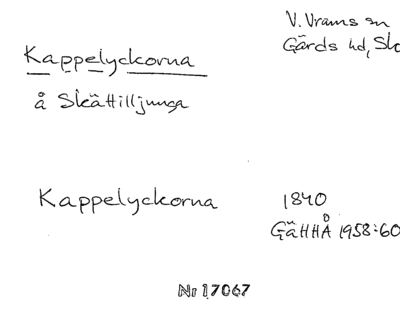 V. Vrams sn
Gärds hd, Sk
Kappelyckorna
å Skättilljunga
Kappelyckorna 1840
GäHHÅ 1958:60
Nr 17067